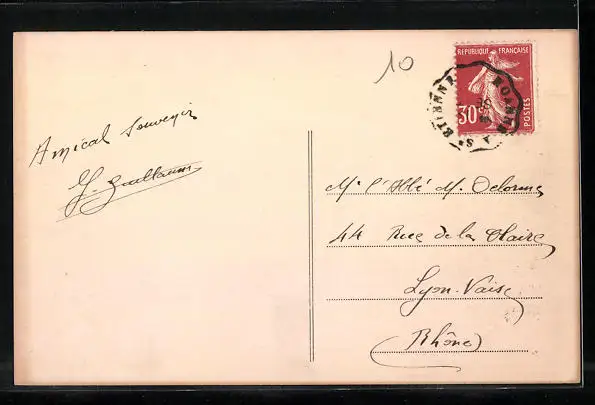 10
REPUBLIQUE FRANÇAISE
30c
POSTES
ROANNE A ST ETIENNE
Amical souvenir
J. Guillaume
Mr l'Abbé M. Delorme
44 Rue de la Claire
Lyon-Vaise
(Rhône)